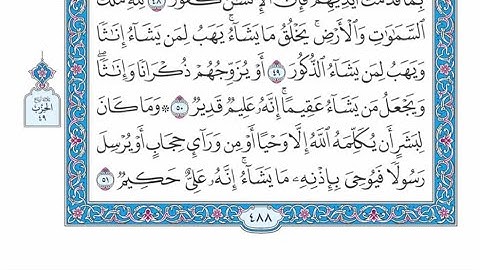 بِمَا قَدَّمَتْ أَيْدِيهِمْ فَإِنَّ ٱلْإِنسَٰنَ كَفُورٌ ٤٨ لِّلَّهِ مُلْكُ
ٱلسَّمَٰوَٰتِ وَٱلْأَرْضِ ۚ يَخْلُقُ مَا يَشَآءُ ۚ يَهَبُ لِمَن يَشَآءُ إِنَٰثًا
وَيَهَبُ لِمَن يَشَآءُ ٱلذُّكُورَ ٤٩ أَوْ يُزَوِّجُهُمْ ذُكْرَانًا وَإِنَٰثًا ۖ
وَيَجْعَلُ مَن يَشَآءُ عَقِيمًا ۚ إِنَّهُۥ عَلِيمٌ قَدِيرٌ ٥٠ ۞ وَمَا كَانَ
لِبَشَرٍ أَن يُكَلِّمَهُ ٱللَّهُ إِلَّا وَحْيًا أَوْ مِن وَرَآئِ حِجَابٍ أَوْ يُرْسِلَ
رَسُولًا فَيُوحِىَ بِإِذْنِهِۦ مَا يَشَآءُ ۚ إِنَّهُۥ عَلِىٌّ حَكِيمٌ ٥١
الحزب
٤٩
٤٨٨